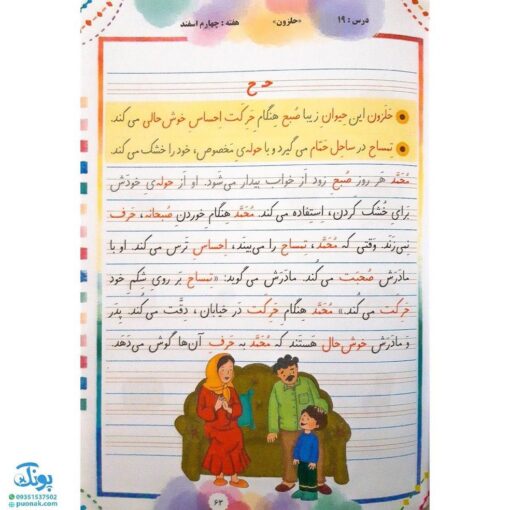 درس : ۱۹ «حلزون» هفته : چهارم اسفند
حـ ح
حَلَزون این حِیوان زیبا صُبح هِنگام حَرِکَت اِحساس خوش حالی می کند.
تِمساح در ساحِل حَمّام می گیرد و با حوله‌یِ مَخصوص، خود را خُشک می کند.
مُحَمَّد هَر روز صُبح زود از خواب بیدار می‌شود. او از حوله‌یِ خودَش
بَرایِ خُشک کَردن، اِستِفاده می‌کند. مُحَمَّد هِنگام خوردَن صُبحانه، حَرف
نِمی‌زَنَد. وَقتی که مُحَمَّد، تِمساح را می‌بیند، اِحساس تَرس می‌کند. او با
مادَرَش صُحبَت می‌کُند. مادَرَش می‌گوید: «تِمساح بَر رویِ شِکَمِ خود
حَرِکَت می‌کُند.» مُحَمَّد هِنگام حَرِکَت در خیابان، دِقَّت می‌کُند. پِدَر
و مادَرَش خوش‌حال هَستند که مُحَمَّد به حَرفِ آن‌ها گوش می‌دَهَد.
۶۲
پونک
09351537502
puonak.com